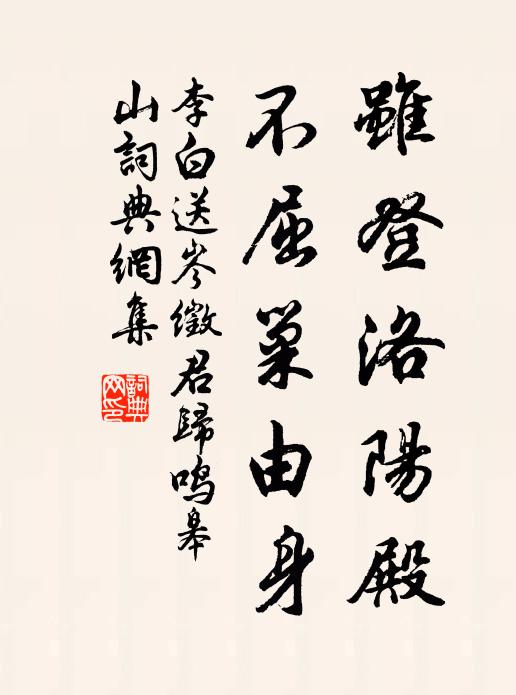 雖登洛陽殿
不屈巢由身
李白送岑徵君歸鳴皋
山詞典網集
詞典網印